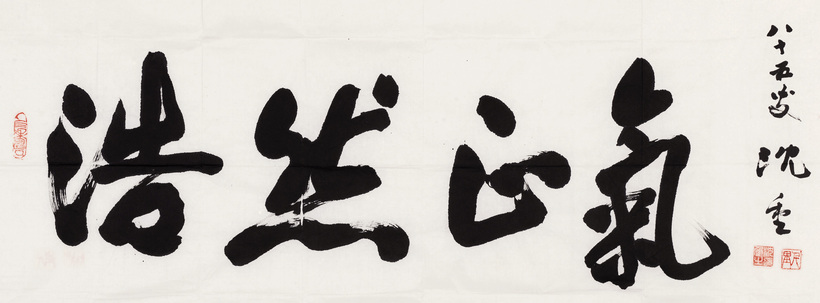 浩然正氣
八十五叟
沈重